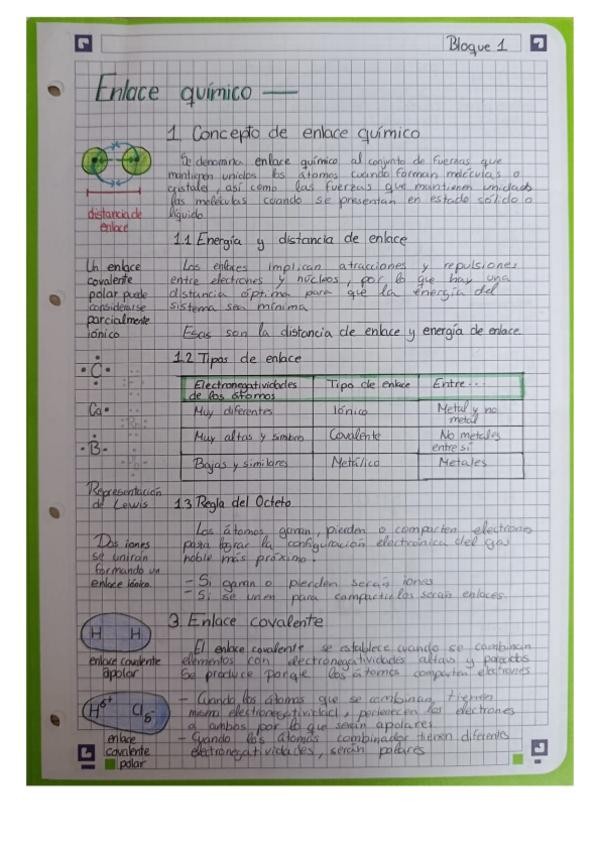 Bloque 1
Enlace químico
1. Concepto de enlace químico
Se denomina enlace químico al conjunto de fuerzas que
mantienen unidos los átomos cuando forman moléculas o
cristales, así como las fuerzas que mantienen unidas
las moléculas cuando se presentan en estado sólido o
líquido
distancia de
enlace
1.1 Energía y distancia de enlace
Los enlaces implican atracciones y repulsiones
entre electrones y núcleos, por lo que hay una
distancia óptima para que la energía del
sistema sea mínima
Esas son la distancia de enlace y energía de enlace
Un enlace
covalente
polar puede
considerarse
parcialmente
iónico
1.2 Tipos de enlace
Electronegatividades Tipo de enlace Entre...
de los átomos
Muy diferentes Iónico Metal y no
metal
Muy altas y Covalente No metales
entre sí
Bajas y similares Metálico Metales
C
Ca
B
Representación
de Lewis
1.3 Regla del Octeto
Los átomos ganan, pierden o comparten electrones
para lograr la configuración electrónica del gas
noble más próximo.
- Si ganan o pierden serán iones
- Si se unen para compartirlos serán enlaces.
Dos iones
se unirán
formando un
enlace iónico.
3. Enlace covalente
El enlace covalente se establece cuando se combinan
elementos con electronegatividades altas y parecidas
Se produce porque los átomos comparten electrones
H H
enlace covalente
apolar
- Cuando los átomos que se combinan, tienen
misma electronegatividad, pertenecen los electrones
a ambos por lo que serán apolares
- Cuando los átomos combinador tienen diferentes
electronegatividades, serán polares
Hδ+ Clδ-
enlace
covalente
polar